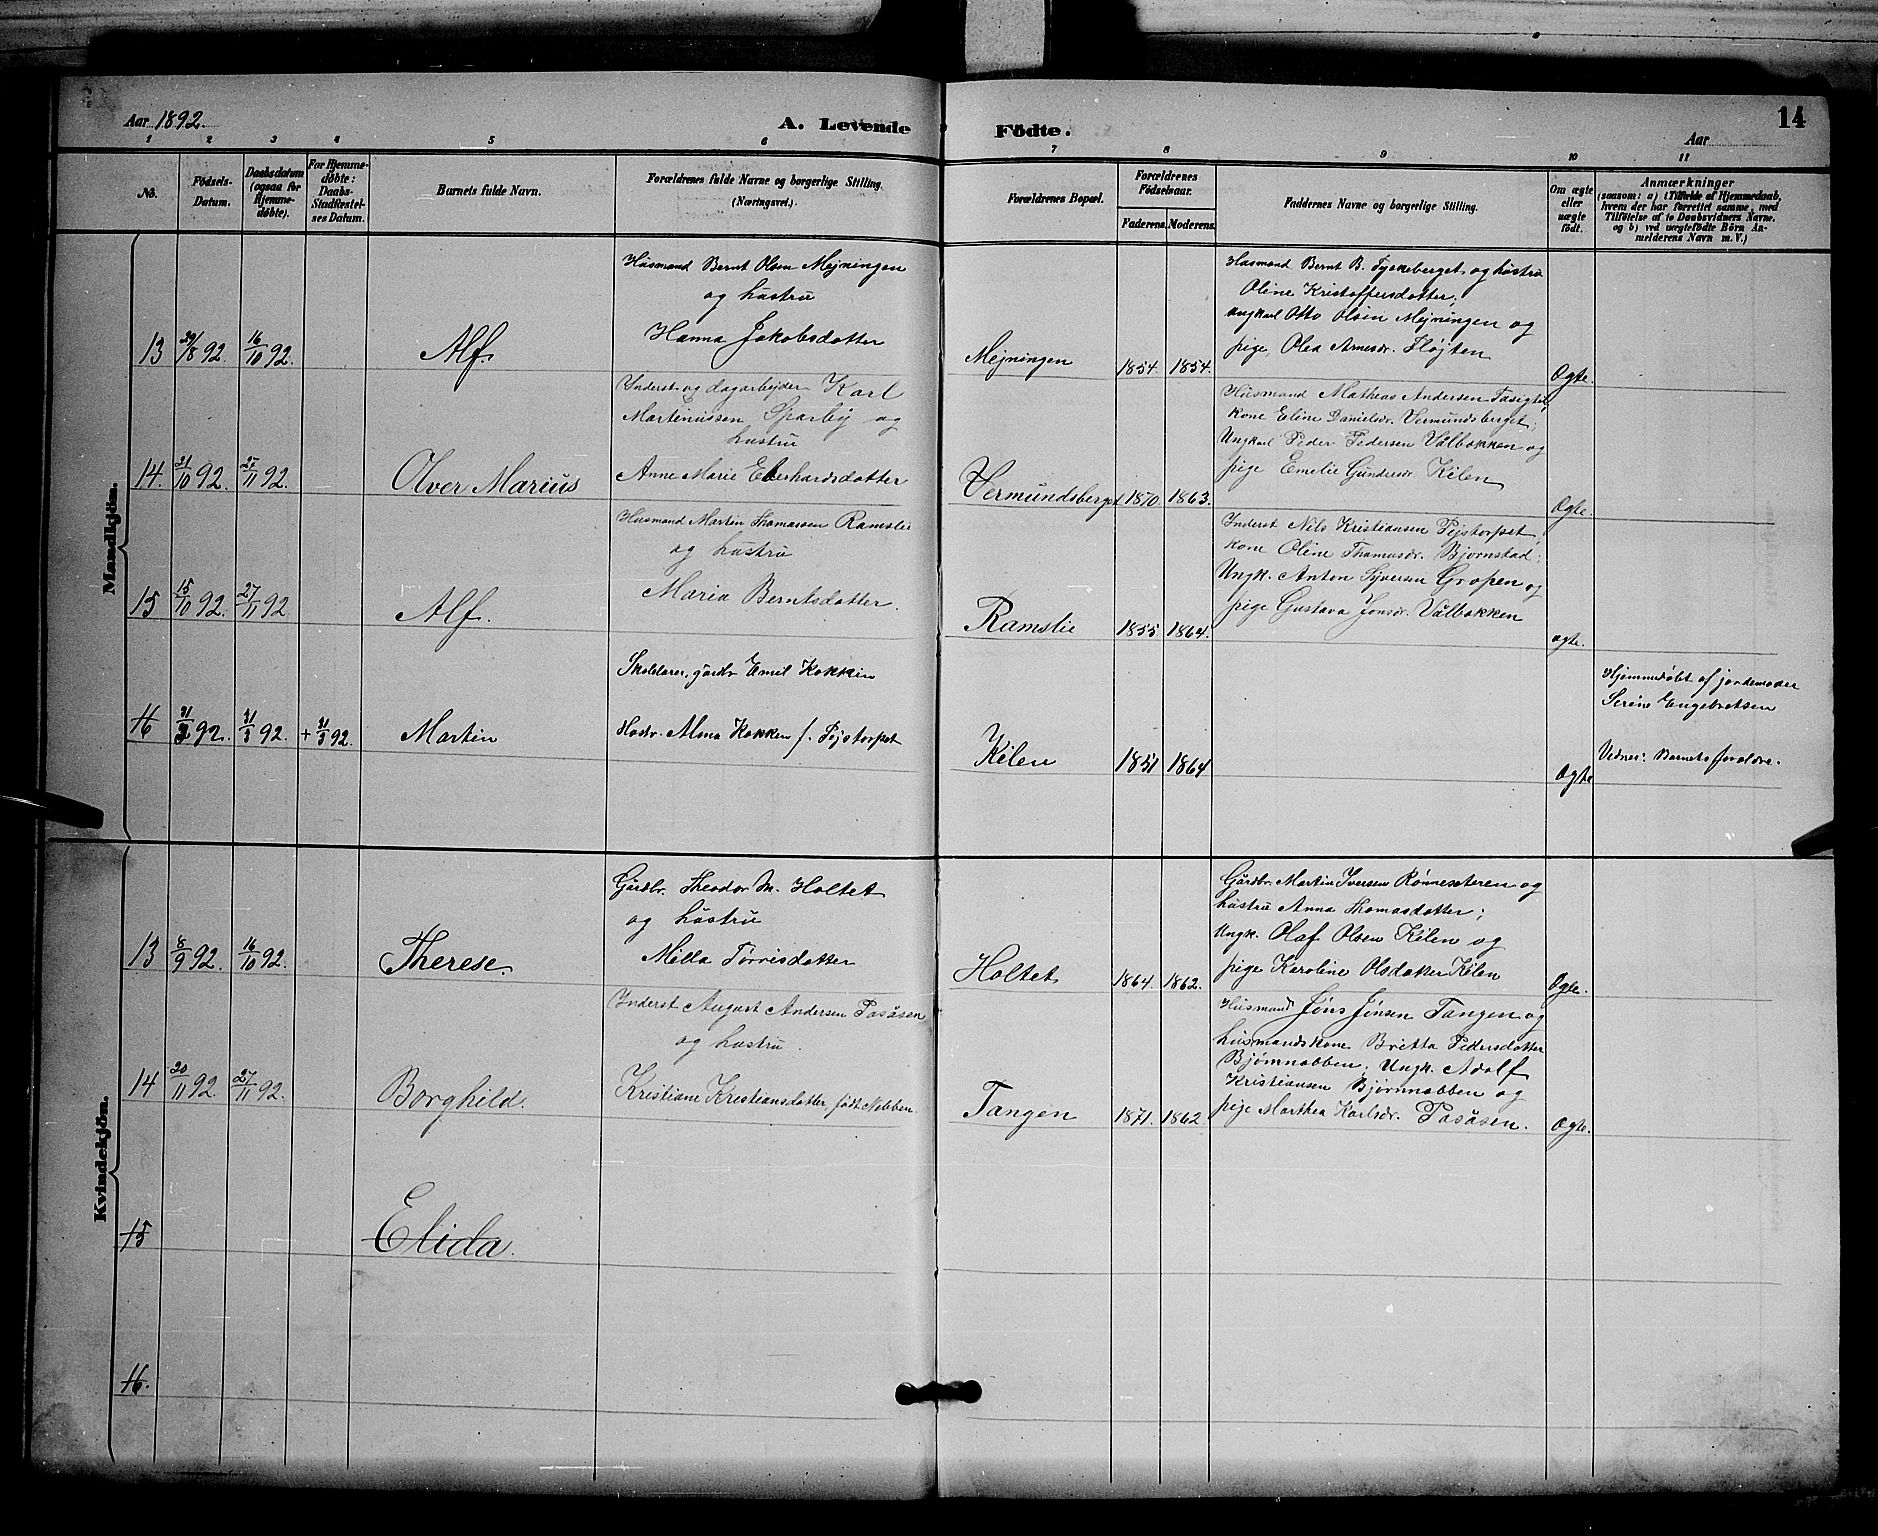 Aar 1892.
A. Levende Födte.
Aar
14
1 2 3 4 5 6 7 8 9 10 11
No.
Födsels-Datum.
Daabsdatum (ogsaa for Hjemme-döbte).
For Hjemme-döbte: Daabs-Stadfæstel-ses Datum.
Barnets fulde Navn.
Forældrenes fulde Navne og borgerlige Stilling.
(Næringsvei.)
Forældrenes Bopæl.
Forældrenes Födselsaar.
Faderens. Moderens.
Faddernes Navne og borgerlige Stilling.
Om ægte eller uægte födt.
Anmærkninger
(saasom: a) i Tilfælde af Hjemmedaab,
hvem der har forrettet samme, med
Tilföielse af to Daabsvidners Navne,
og b) ved uægtefödte Börn An-
melderens Navn m. V.)
Mandkjön.
13 29/8 92. 16/10 92. Alf.
Husmand Bernt Olsen Mejningen
og hustru
Hanna Jakobsdatter
Mejningen 1854. 1854.
Husmand Bernt B. Tyskeberget og hustru
Oline Kristoffersdatter;
ungkarl Otto Olsen Mejningen og
pige Olea Arnesdr. Fløjten
Ægte.
14. 21/10 92. 27/11 92. Olver Marius
Inderst og dagarbejder Karl
Martinussen Sparby og
hustru
Anne Marie Eberhardsdatter
Vermundsberget 1870. 1863.
Husmand Matheas Andersen
kone Eline Danielsdr. Vermundsberget;
Ungkarl Peder Pedersen Välbakken og
pige Emelie Gundersdr. Kilen
Ægte.
15 15/10 92. 27/11 92 Alf.
Husmand Martin Thomassen Ramslie
og hustru
Maria Berntsdatter.
Ramslie 1855. 1864.
Inderst Nils Kristiansen Pejstorpet,
kone Oline Thomasdr. Bjørnstad;
Ungk. Anton Syversen Gropen og
pige Gustava Jonsdr. Välbakken
ægte.
16 31/3 92. 31/3 92. + 31/3 92. Martin
Skolelærer, gårdbr Emil Kokkin
Hustr. Alma Kokken f. Pejstorpet
Kilen 1851 1864
Ægte
Hjemmedøbt af jordemoder
Serine Engebretsen
Vidner: Barnets foreldre.
Kvindekjön.
13 8/9 92. 16/10 92. Therese.
Gårdbr. Theodor M. Holtet
og hustru
Milla Tørrisdatter
Holtet 1864. 1862.
Gårdbr. Martin Iversen Rønneseteren og
hustru Anna Thomasdatter;
Ungk. Olaf Olsen Kilen og
pige Karoline Olsdatter Kilen
Ægte.
14 20/11 92. 27/11 92. Borghild.
Inderst August Andersen Pasåsen
og hustru.
Kristiane Kristiansdatter, født Nabben
Tangen 1871. 1862.
Husmand Jøns Jønsen Tangen og
husmandskone Britta Pedersdatter
Bjørnnabben; Ungk. Adolf
Kristiansen Bjørnnabben og
pige Marthea Karlsdr. Pasåsen.
Ægte.
15 Elida.
16.